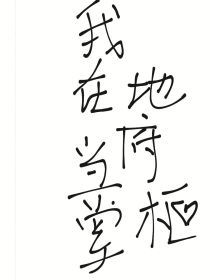 我在当掌
地府柜♡